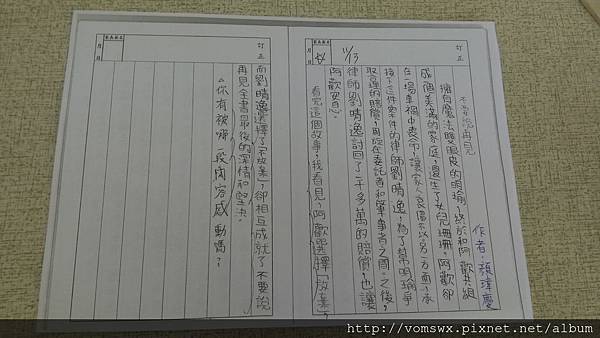 訂正
11/13
不要說再見
作者：張瑋慶
擁有魔法雙眼皮的明瑜，終於和阿歡共組
成個美滿的家庭，還生了女兒珊珊。阿歡卻
在一場車禍中喪命，讓家人哀傷不以。另一方面，承
接這件案件的律師劉晴逸，為了幫明瑜爭
取合理的賠償，周旋在委託者和肇事者之間。之後，
律師劉晴逸討回了一千多萬的賠償，也讓
阿歡安息。
看完這個故事，我看見，阿歡選擇「放棄」，
訂正
而劉晴逸選擇了「不放棄」，卻相互成就了不要說
再見全書最後的深情和堅決。
你有被哪一段內容感動嗎？
http://vomswx.pixnet.net/album